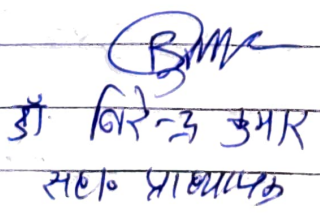 डॉ विरेन्द्र कुमार
सहा० प्राध्यापक